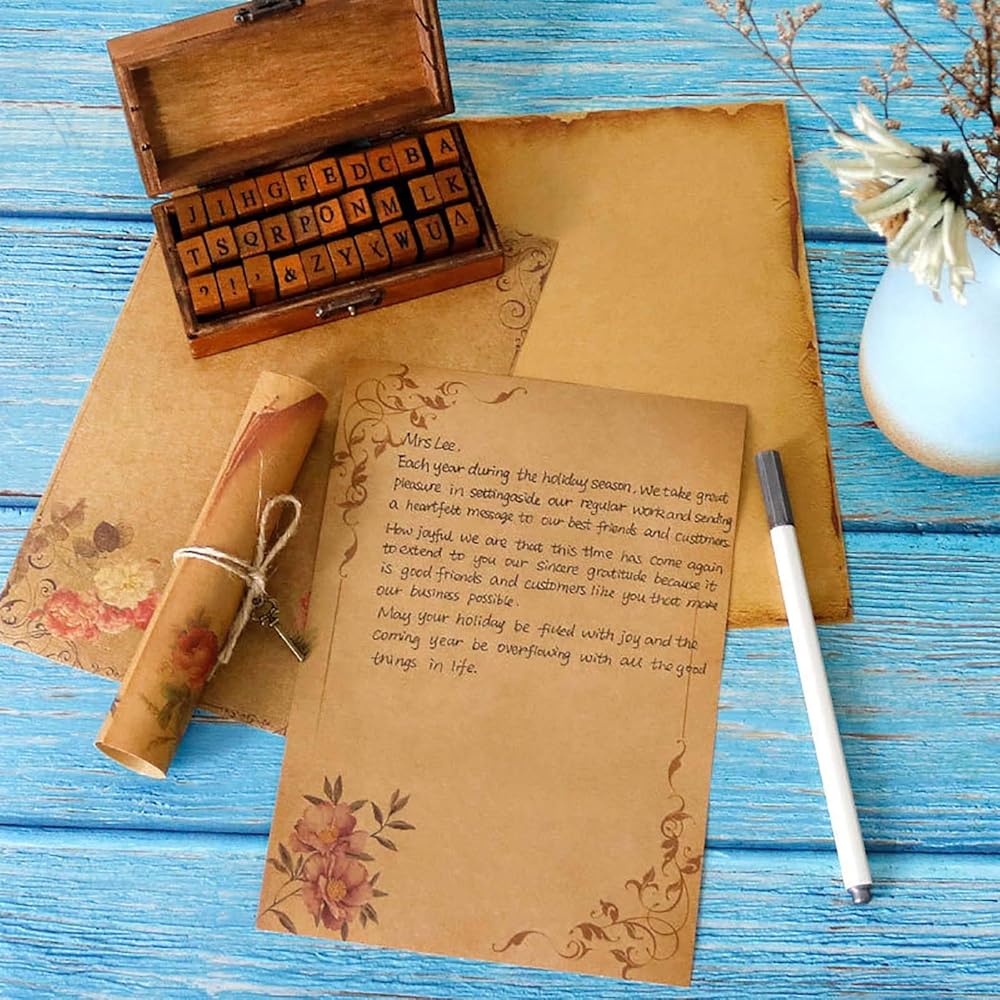 J I H G F E D C B A
T S Q R P O N M L K
? ! , & Z Y X W U A
Mrs Lee.
Each year during the holiday season, we take great
pleasure in settingaside our regular work and sending
a heartfelt message to our best friends and customers
How joyful we are that this time has come again
to extend to you our sincere gratitude because it
is good friends and customers like you that make
our business possible.
May your holiday be filled with joy and the
coming year be overflowing with all the good
things in life.